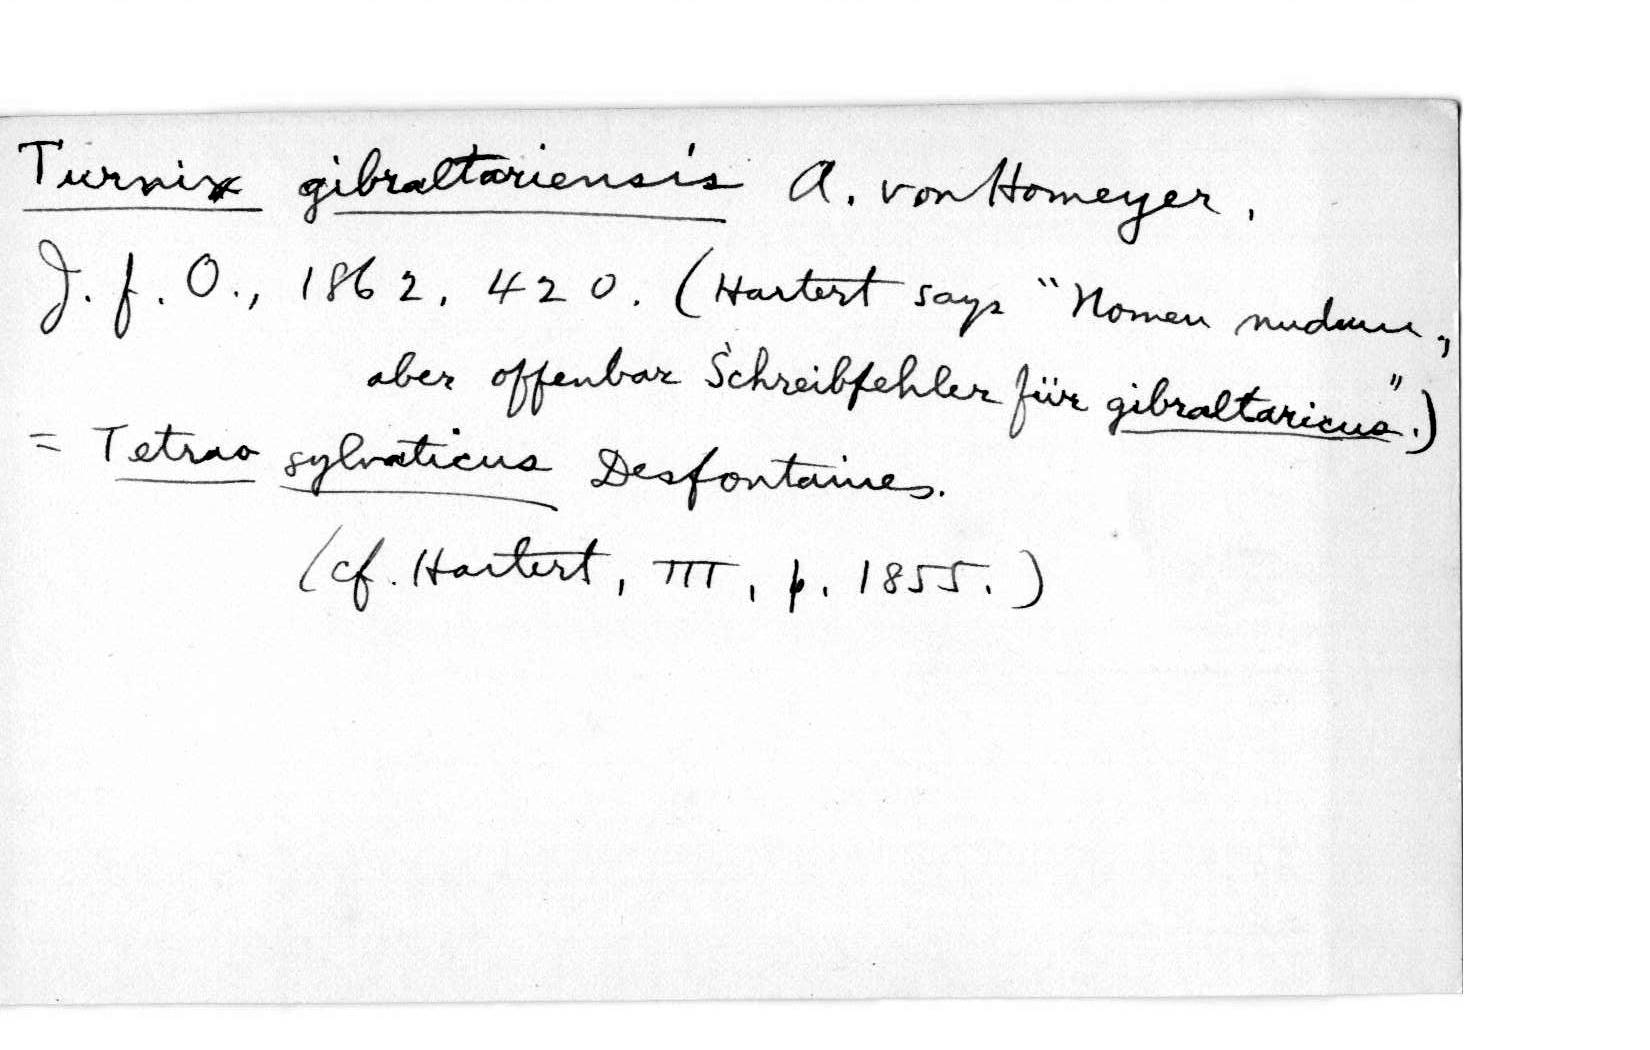 Turnix gibraltariensis A. von Homeyer,
J. f. O., 1862, 420. (Hartert says "Nomen nudum,
aber offenbar Schreibfehler für gibraltaricus".)
= Tetrao sylvaticus Desfontaines.
(cf. Hartert, III, p. 1855.)